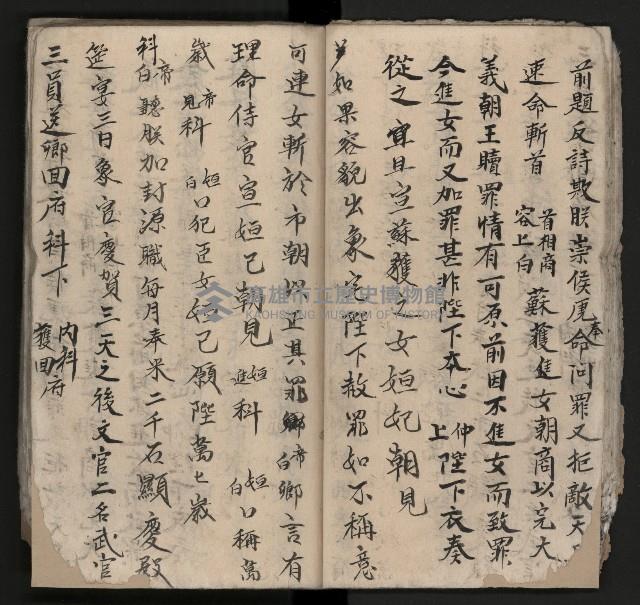 前題反詩欺朕崇侯虎奉命问罪又拒敵天
速命斬首 首相商容上白 蘇護進女朝商以完大
義朝王贖罪情有可原前因不進女而致罪
今進女而又加罪甚非陛下本心 仲上 陛下衣奏
從之宣旦宣蘇護之女妲妃朝見
如果容貌出象定陛下赦罪如不称意
可連女斬於市朝以正其罪 帝白 卿言有
理命侍官宣妲己朝見 妲進 科 妲白 口稱萬
歲 帝見 科 妲白 口犯臣女妲己願陛萬七歲
科 帝白 聽朕加封源職每月奉米二千石顯慶殿
筵宴三日象官慶賀三天之後文官二名武官
三員送鄉回府科下 內科護回府
高雄市立歷史博物館
KAOHSIUNG MUSEUM OF HISTORY